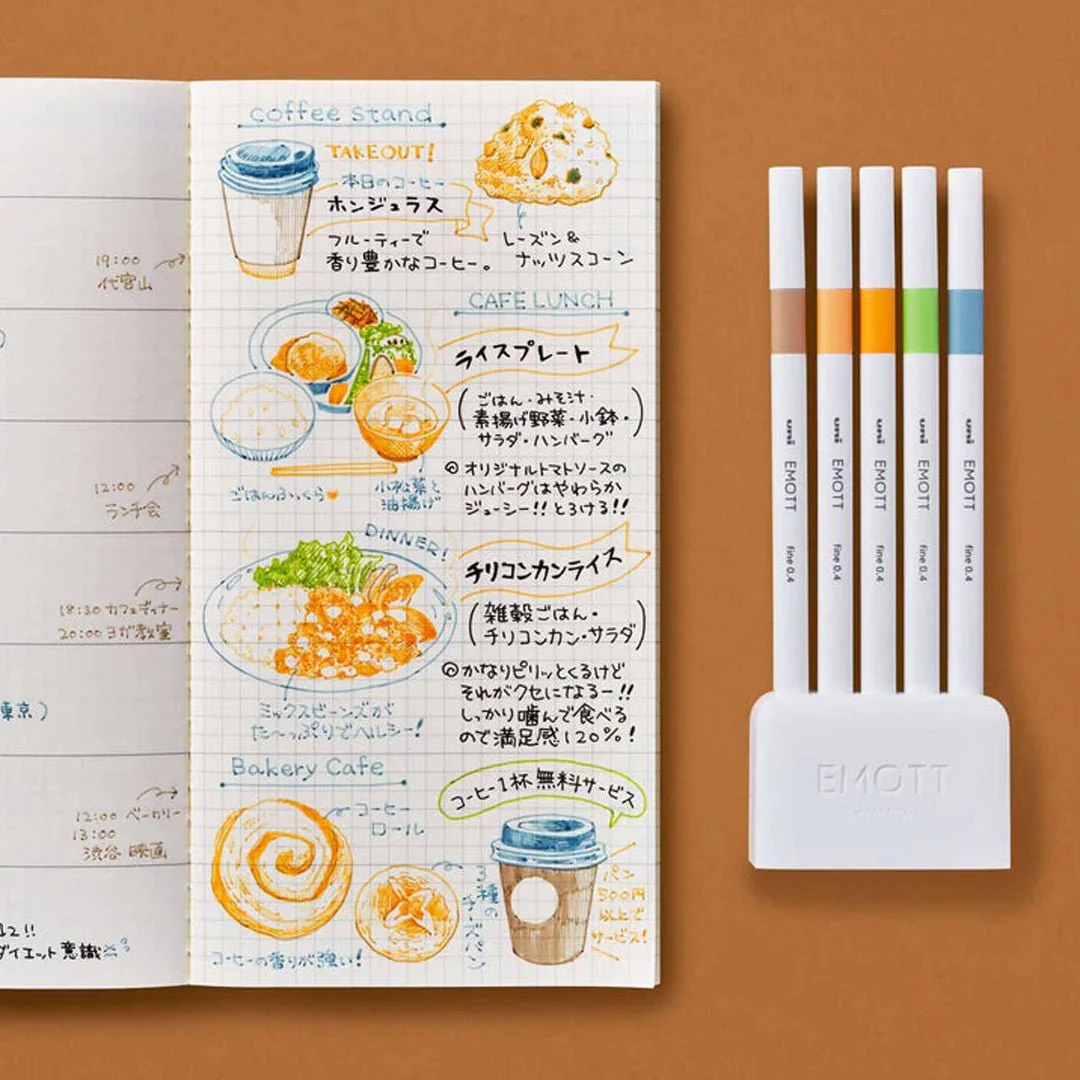 19:00
代官山
12:00
ランチ会
18:30 カフェディナー
20:00 ヨガ教室
東京)
12:00 ベーカリー
13:00
渋谷 映画
ダイエット意識
coffee stand
TAKEOUT!
本日のコーヒー
ホンジュラス
フルーティーで
香り豊かなコーヒー。
レーズン&
ナッツスコーン
CAFE LUNCH
ライスプレート
(ごはん・みそ汁・
素揚げ野菜・小鉢・
サラダ・ハンバーグ)
◎オリジナルトマトソースの
ハンバーグはやわらか
ジューシー!!とろける!!
ごはんふっくら
小松菜と
油揚げ
DINNER!
チリコンカンライス
(雑穀ごはん・
チリコンカン・サラダ)
◎かなりピリッとくるけど
それがクセになるー!!
しっかり噛んで食べる
ので満足感120%!
ミックスビーンズが
た〜っぷりでヘルシー!
Bakery Cafe
コーヒー1杯無料サービス
コーヒー
ロール
3種の
チーズパン
パン
500円
以上で
サービス!
コーヒーの香りが強い!
uni EMOTT fine 0.4
uni EMOTT fine 0.4
uni EMOTT fine 0.4
uni EMOTT fine 0.4
uni EMOTT fine 0.4
EMOTT